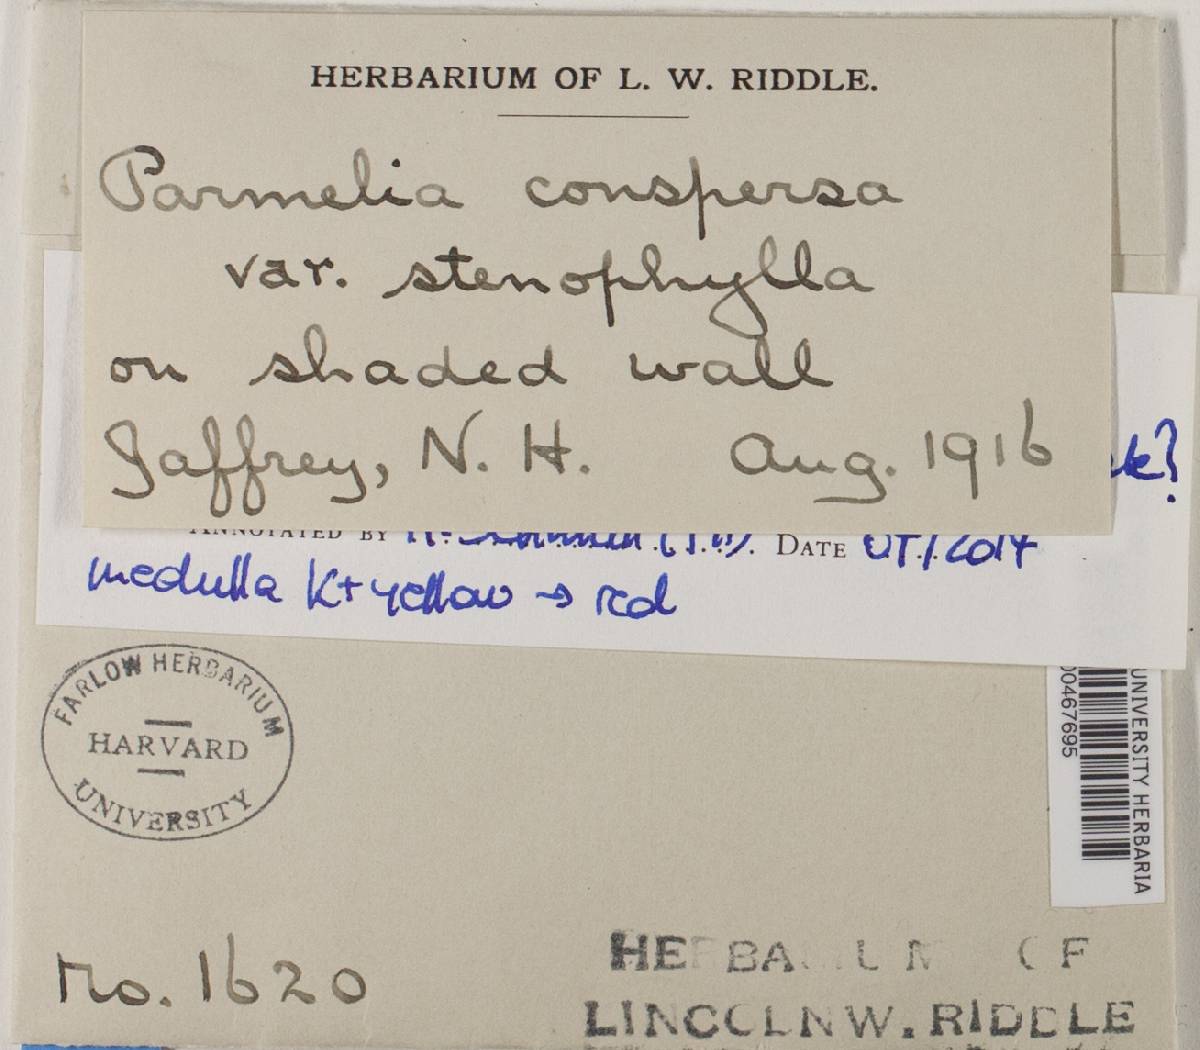 HERBARIUM OF L. W. RIDDLE.
Parmelia conspersa
var. stenophylla
on shaded wall
Jaffrey, N. H. Aug. 1916
ANNOTATED BY DATE 2014
medulla K+ yellow → red
FARLOW HERBARIUM
HARVARD
UNIVERSITY
UNIVERSITY HERBARIA
00467695
No. 1620
HERBARIUM OF
LINCOLN W. RIDDLE